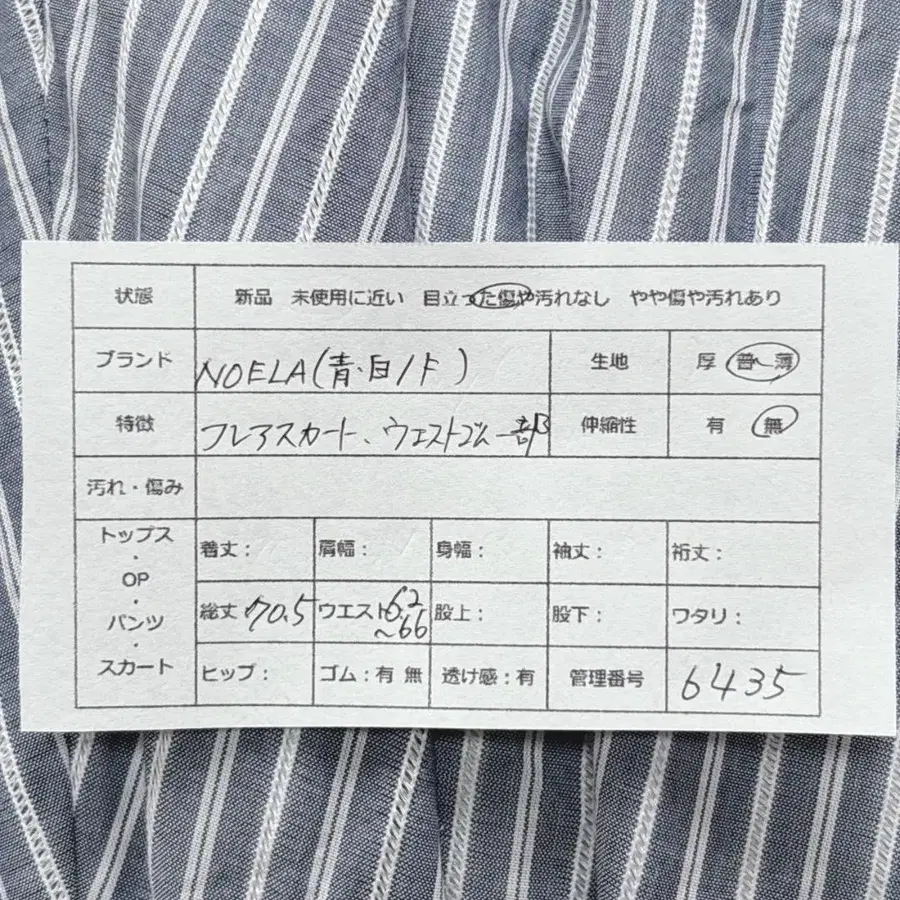 状態 新品 未使用に近い 目立った傷や汚れなし やや傷や汚れあり
ブランド NOELA(青・白/F) 生地 厚 普〜薄
特徴 フレアスカート、ウエストゴム一部 伸縮性 有 無
汚れ・傷み
トップス・OP・パンツ・スカート
着丈: 肩幅: 身幅: 袖丈: 裄丈:
総丈70.5 ウエスト62~66 股上: 股下: ワタリ:
ヒップ: ゴム:有 無 透け感:有 管理番号 6435